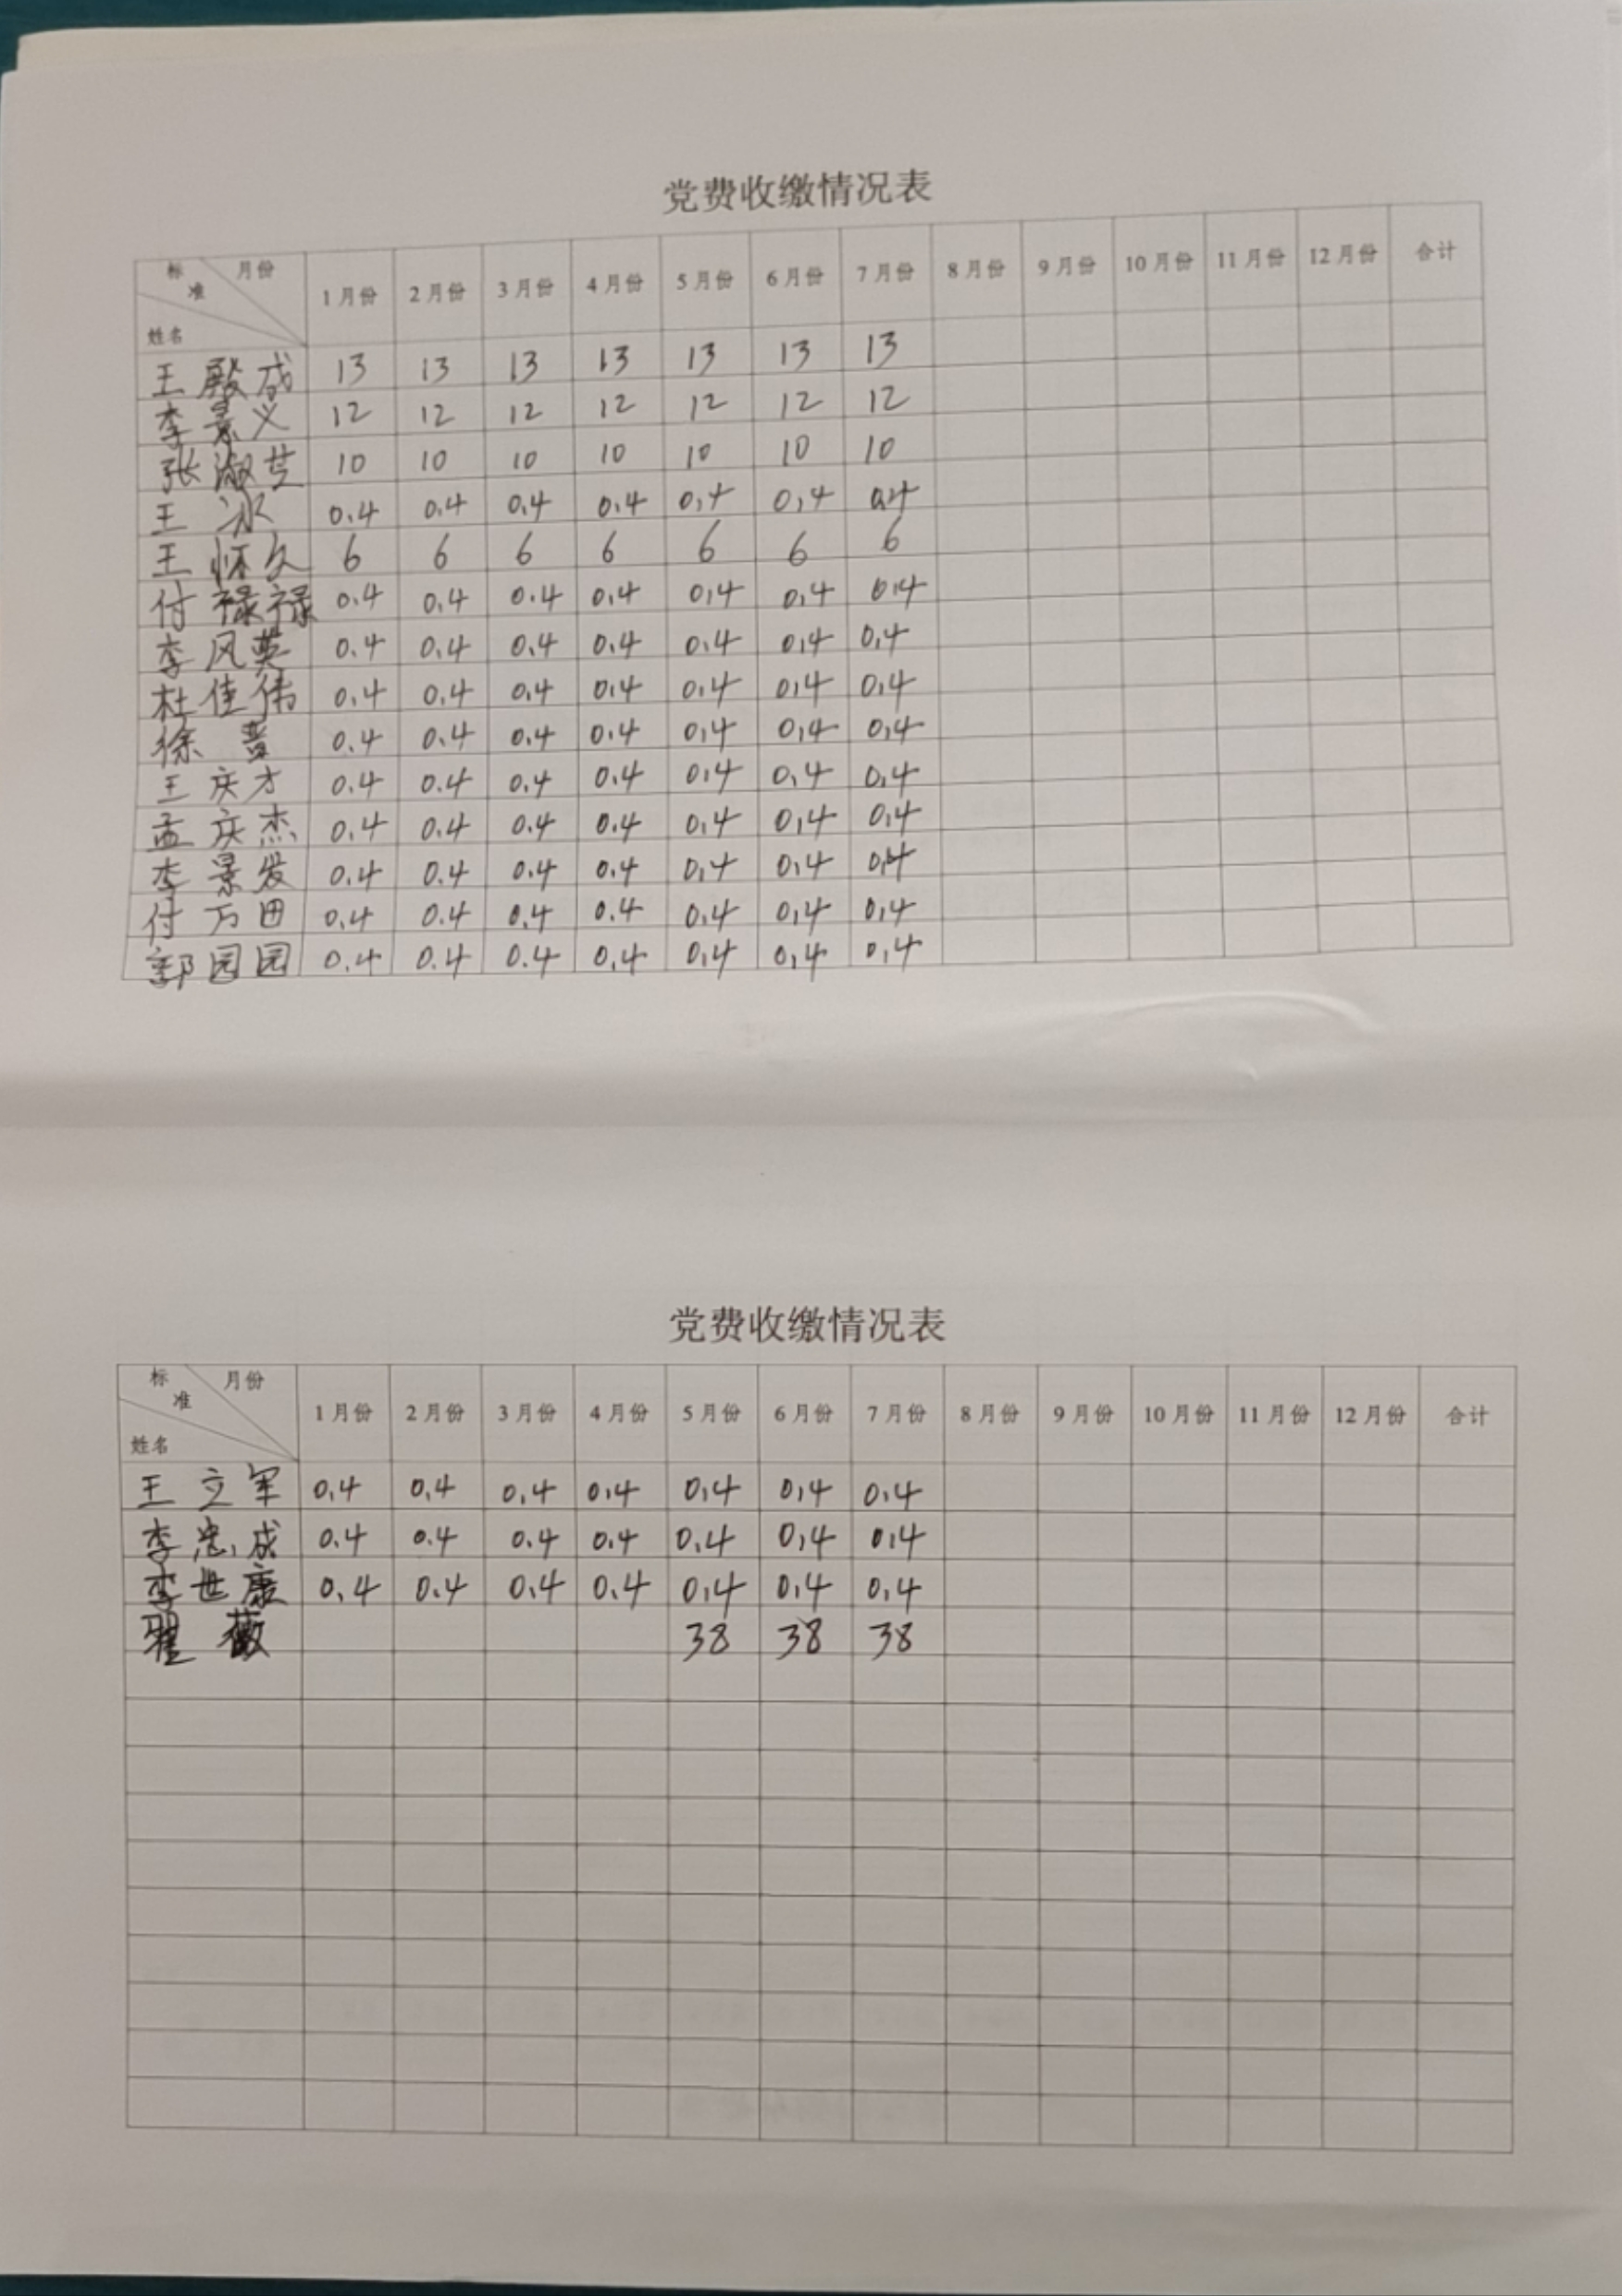 党费收缴情况表
标准 月份 姓名 1月份 2月份 3月份 4月份 5月份 6月份 7月份 8月份 9月份 10月份 11月份 12月份 合计
王殿成 13 13 13 13 13 13 13
李景义 12 12 12 12 12 12 12
张淑芝 10 10 10 10 10 10 10
王冰 0.4 0.4 0.4 0.4 0.4 0.4 0.4
王怀久 6 6 6 6 6 6 6
付禄禄 0.4 0.4 0.4 0.4 0.4 0.4 0.4
李风英 0.4 0.4 0.4 0.4 0.4 0.4 0.4
杜佳伟 0.4 0.4 0.4 0.4 0.4 0.4 0.4
徐 0.4 0.4 0.4 0.4 0.4 0.4 0.4
王庆才 0.4 0.4 0.4 0.4 0.4 0.4 0.4
孟庆杰 0.4 0.4 0.4 0.4 0.4 0.4 0.4
李景发 0.4 0.4 0.4 0.4 0.4 0.4 0.4
付万田 0.4 0.4 0.4 0.4 0.4 0.4 0.4
园园 0.4 0.4 0.4 0.4 0.4 0.4 0.4
党费收缴情况表
标准 月份 姓名 1月份 2月份 3月份 4月份 5月份 6月份 7月份 8月份 9月份 10月份 11月份 12月份 合计
王立军 0.4 0.4 0.4 0.4 0.4 0.4 0.4
李忠成 0.4 0.4 0.4 0.4 0.4 0.4 0.4
李世康 0.4 0.4 0.4 0.4 0.4 0.4 0.4
翟薇 38 38 38